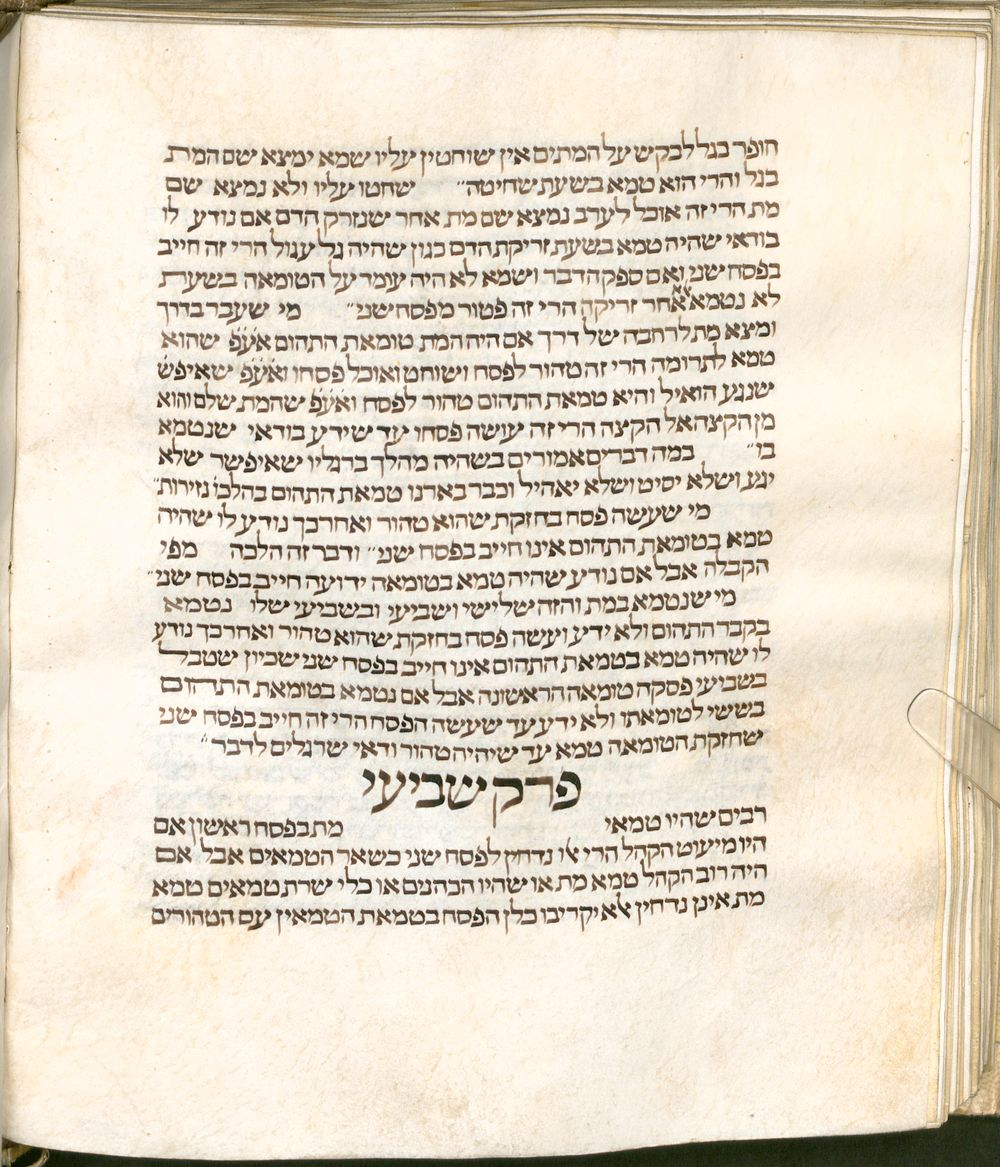 חופר בגל לבקש על המתים אין שוחטין עליו שמא ימצא שם המת
בגל והרי הוא טמא בשעת שחיטה״ שחטו עליו ולא נמצא שם
מת הרי זה אוכל לערב נמצא שם מת אחר שנזרק הדם אם נודע לו
בודאי שהיה טמא בשעת זריקת הדם כגון שהיה גל עגול הרי זה חייב
בפסח שני ואם ספק הדבר ושמא לא היה עומד על הטומאה בשעת
לא נטמא אלא אחר זריקה הרי זה פטור מפסח שני״ מי שעבר בדרך
ומצא מת לרחבה של דרך אם היה המת טומאת התהום אע̇פ̇ שהוא
טמא לתרומה הרי זה טהור לפסח ושוחט ואוכל פסחו ואע̇פ̇ שאיפש׳
שנגע הואיל והיא טמאת התהום טהור לפסח ואע̇פ̇ שהמת שלם והוא
מן הקצה אל הקצה הרי זה עושה פסחו עד שידע בודאי שנטמא
בו״ במה דברים אמורים בשהיה מהלך ברגליו שאיפשר שלא
יגע ושלא יסיט ושלא יאהיל וכבר בארנו טמאת התהום בהלכו׳ נזירות״
מי שעשה פסח בחזקת שהוא טהור ואחר כך נודע לו שהיה
טמא בטומאת התהום אינו חייב בפסח שני״ ודבר זה הלכה מפי
הקבלה אבל אם נודע שהיה טמא בטומאה ידועה חייב בפסח שני״
מי שנטמא במת והזה שלישי ושביעי ובשביעי שלו נטמא
בקבר התהום ולא ידע ועשה פסח בחזקת שהוא טהור ואחר כך נודע
לו שהיה טמא בטמאת התהום אינו חייב בפסח שני שכיון שטבל
בשביעי פסקה טומאה הראשונה אבל אם נטמא בטומאת התהום
בששי לטומאתו ולא ידע עד שעשה הפסח הרי זה חייב בפסח שני
שחזקת הטומאה טמא עד שיהיה טהור ודאי שרגלים לדבר״
פרק שביעי
רבים שהיו טמאי מת בפסח ראשון אם
היו מיעוט הקהל הרי אלו נדחין לפסח שני כשאר הטמאים אבל אם
היה רוב הקהל טמא מת או שהיו הכהנים או כלי שרת טמאים טמא
מת אינן נדחין אלא יקריבו כלן הפסח בטמאת הטמאין עם הטהורים